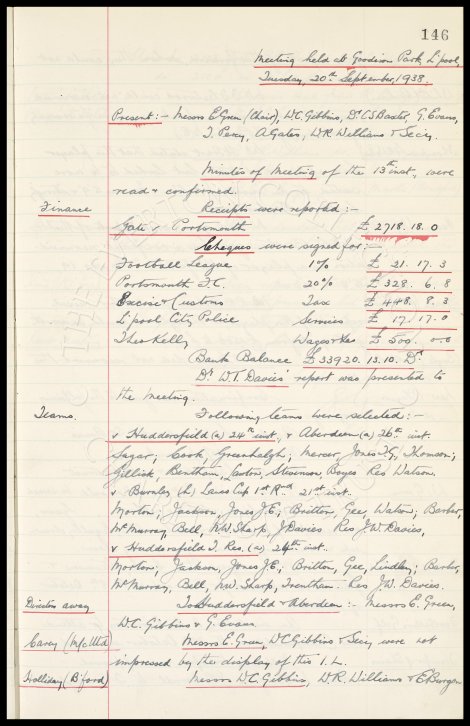 146
Meeting held at Goodison Park, L'pool,
Tuesday, 20th September, 1938.
Present:- Messrs E. Green (Chair), W.C. Gibbins, Dr C.S. Baxter, G. Evans,
T. Percy, A. Gates, W.R. Williams & Secy.
Minutes of Meeting of the 13th inst. were
read & confirmed.
Finance Receipts were reported:-
Gate v Portsmouth £ 2718. 18. 0
Cheques were signed for:-
Football League 1% £ 21. 17. 3
Portsmouth F.C. 20% £ 328. 6. 8
Excise & Customs Tax £ 448. 8. 3
L'pool City Police Services £ 17. 17. 0
Theo Kelly Wages & Res £ 500. 0. 0
Bank Balance £33920. 13. 10. Dr
Dr W.T. Davies' report was presented to
the meeting.
Teams. Following teams were selected:-
v Huddersfield (a) 24th inst, v Aberdeen (a) 26th inst.
Sagar; Cook, Greenhalgh; Mercer, Jones T.G, Thomson;
Gillick, Bentham, Lawton, Stevenson Boyes Res Watson.
v Burnley (h) Lancs Cup 1st Rnd 21st inst.
Morton; Jackson, Jones J.E; Britton, Gee, Watson; Barber,
McMurray, Bell, N.W. Sharp, J. Davies Res J.W. Davies,
v Huddersfield T. Res. (a) 24th inst.
Morton; Jackson, Jones J.E; Britton, Gee, Lindley; Barber,
McMurray, Bell, N.W. Sharp, Trentham. Res J.W. Davies.
Directors away To Huddersfield & Aberdeen:- Messrs E. Green,
W.C. Gibbins & G. Evans.
Carey (M/c Utd) Messrs E. Green, W.C. Gibbins & Secy were not
impressed by the display of this I.L.
Halliday (B'ford) Messrs W.C. Gibbins, W.R. Williams &